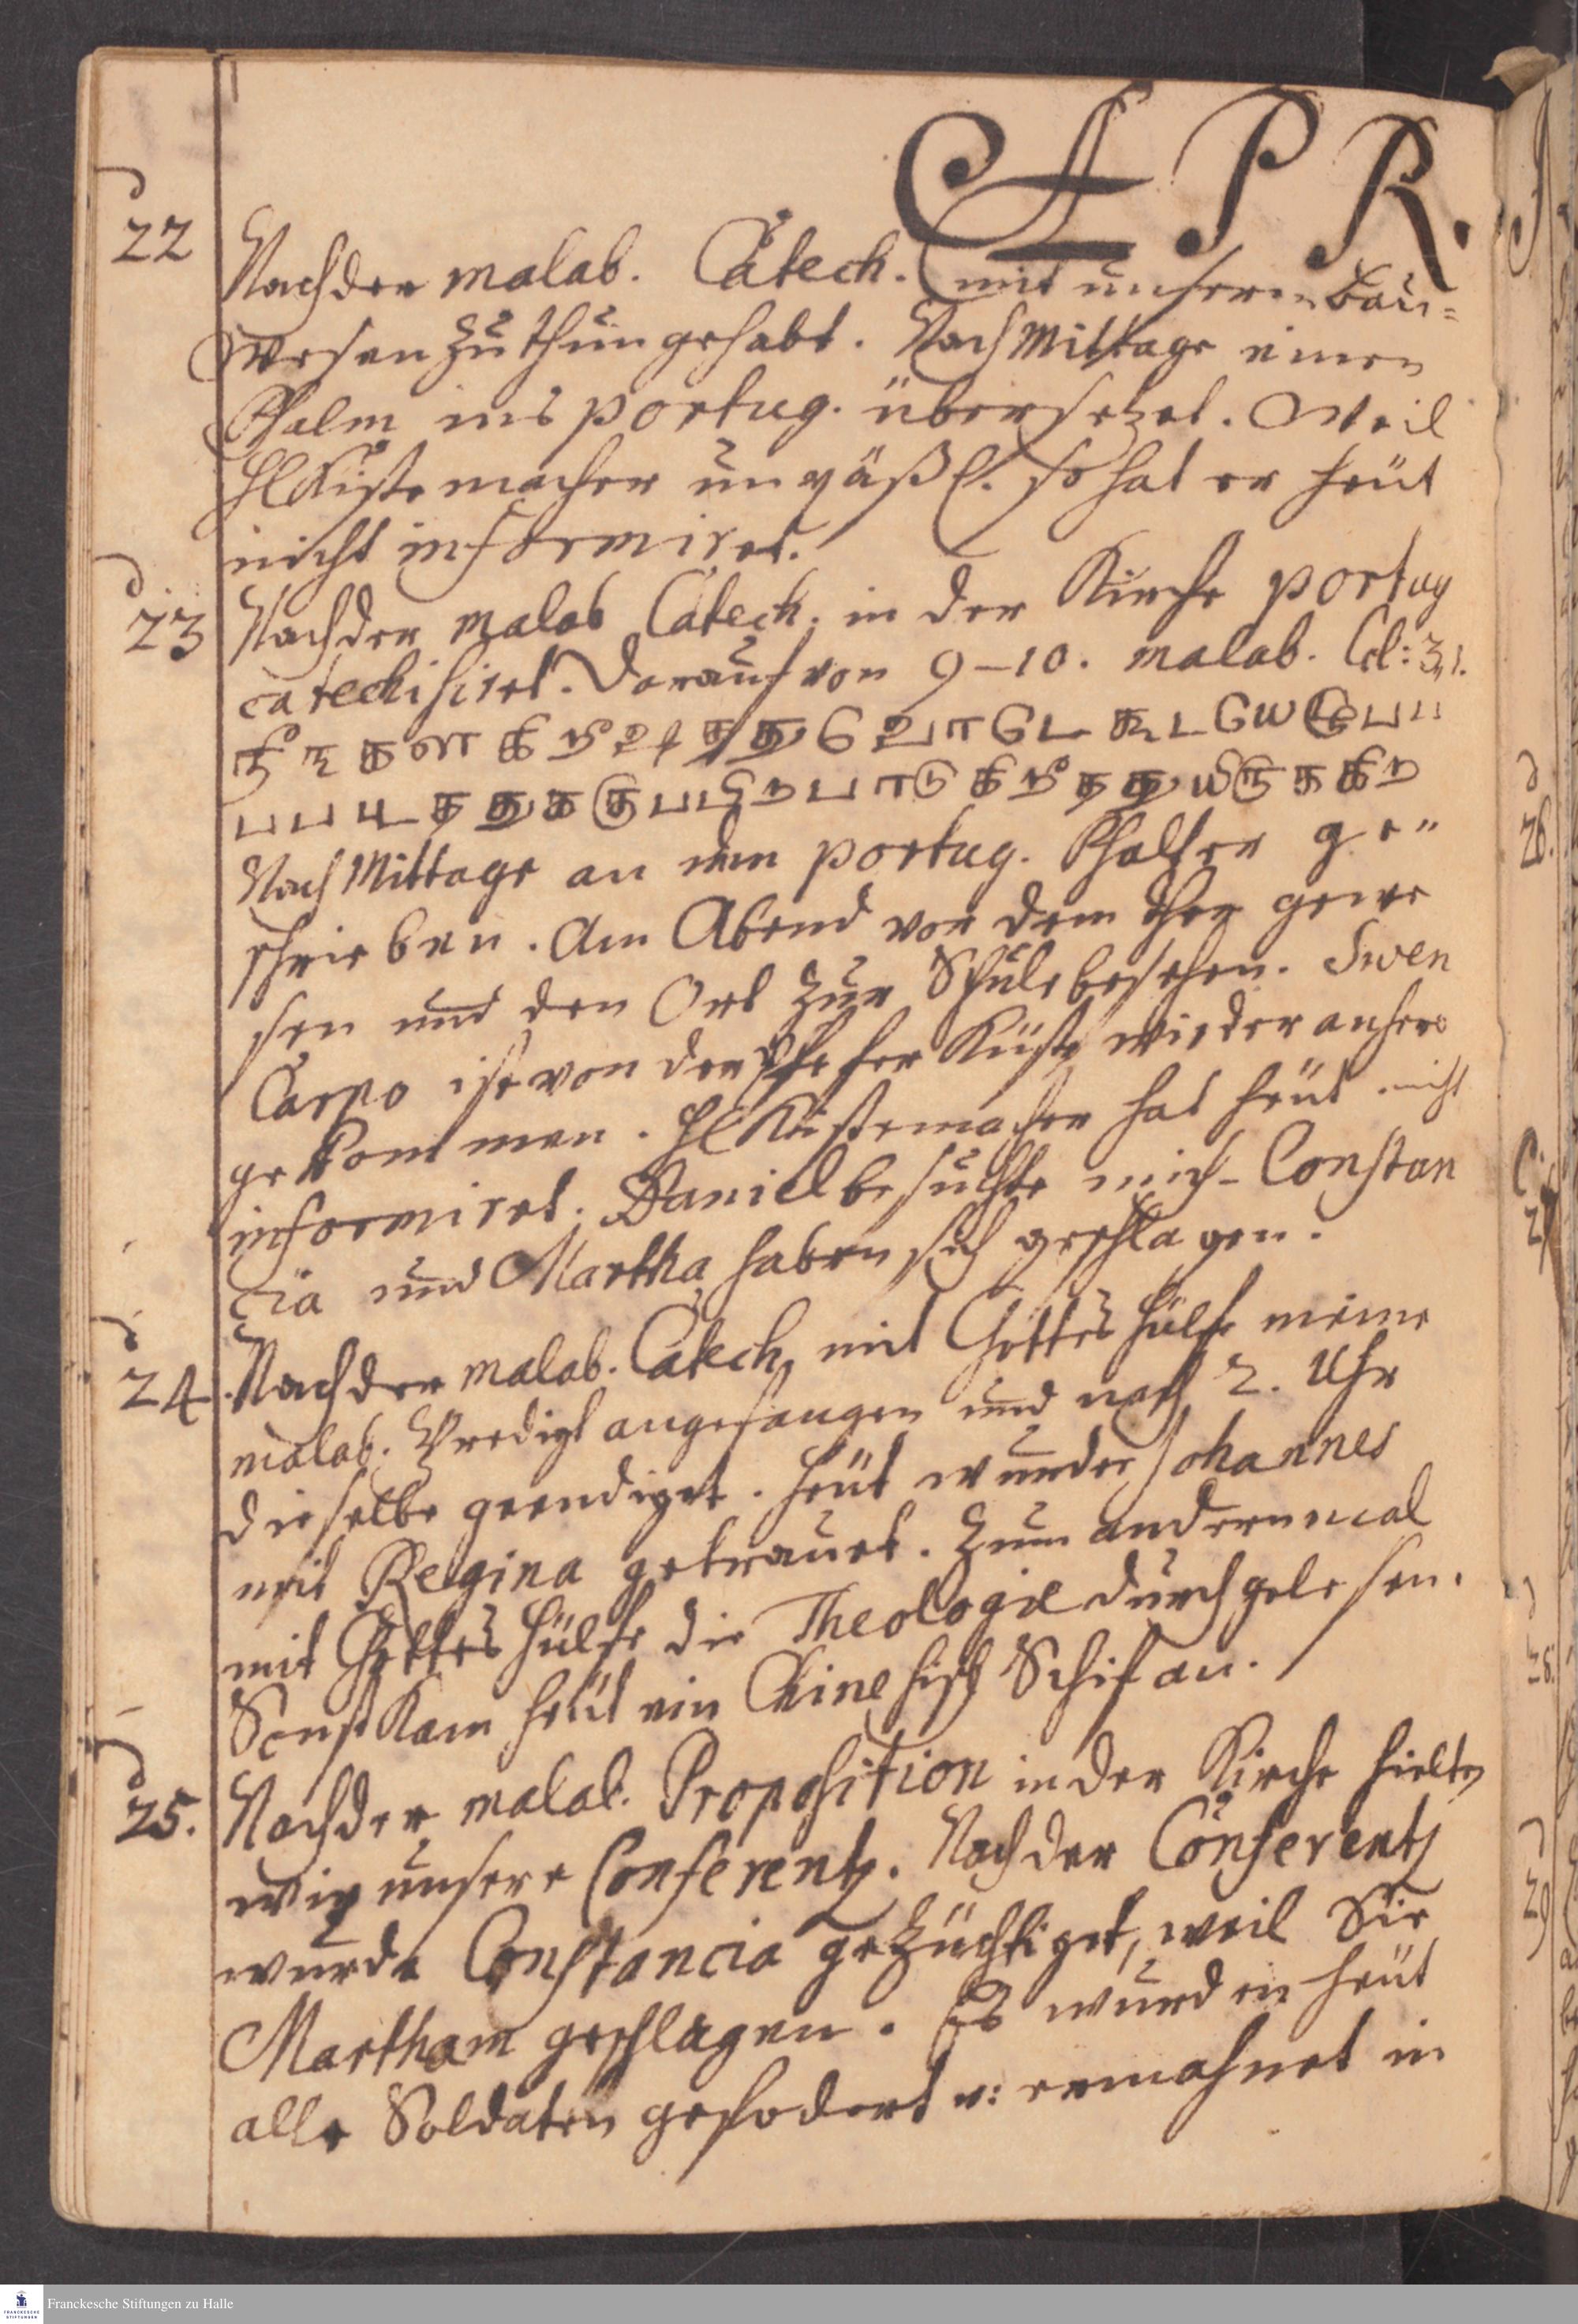 APR.
22 Nach der malab. Catech. mit unserm Bau-
wesen zu thun gehabt. Nach Mittage einen
Psalm ins portug. übersezet. Weil
H Kistenmacher unpäßl. so hat er heut
nicht informiret.
23 Nach der malab Catech. in der Kirche portug
catechisiret. Darauf von 9–10. malab. Col: 3,1.
Nach Mittage an dem portug. Psalter ge-
schrieben. Am Abend vor dem Thor gewe
sen und den Ort zur Schule besehen. Swen
Carno ist von der Küste wieder anhero
gekommen. H Kistenmacher hat heut nicht
informiret. Daniel besuchte mich. Constan
cia und Martha haben sich geschlagen.
24. Nach der malab. Catech. mit Gottes Hülfe meine
malab. Predigt angefangen und nach 2. Uhr
dieselbe geendiget. Heut wurde Johannes
mit Regina getrauet. Zum andernmal
mit Gottes Hülfe die Theologie durchgelesen.
Sonst kam heut ein Chinesisch Schif an.
25. Nach der malab. Proposition in der Kirche hielten
wir unsere Conferentz. Nach der Conferentz
wurde Constancia gezüchtiget, weil Sie
Martham geschlagen. Es wurden heut
alle Soldaten gefodert u: ermahnet in
26.
27
28.
29
Franckesche Stiftungen zu Halle